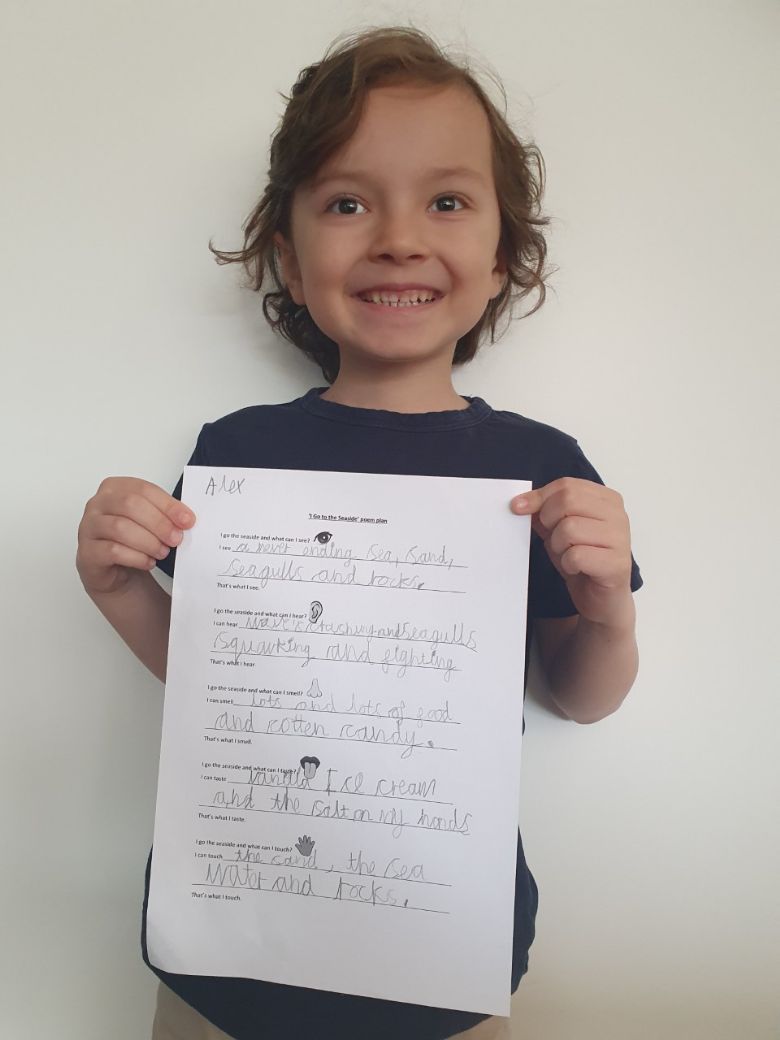 Alex
'I Go to the Seaside' poem plan
I go the seaside and what can I see?
I see a never ending sea, sand,
seagulls and rocks.
That's what I see.
I go the seaside and what can I hear?
I can hear waves crashing and seagulls
squarking and fighting
That's what I hear.
I go the seaside and what can I smell?
I can smell lots and lots of food
and cotten candy.
That's what I smell.
I go the seaside and what can I taste?
I can taste Vanilla Ice cream
and the salt on my hands
That's what I taste.
I go the seaside and what can I touch?
I can touch the sand, the sea
water and rocks.
That's what I touch.